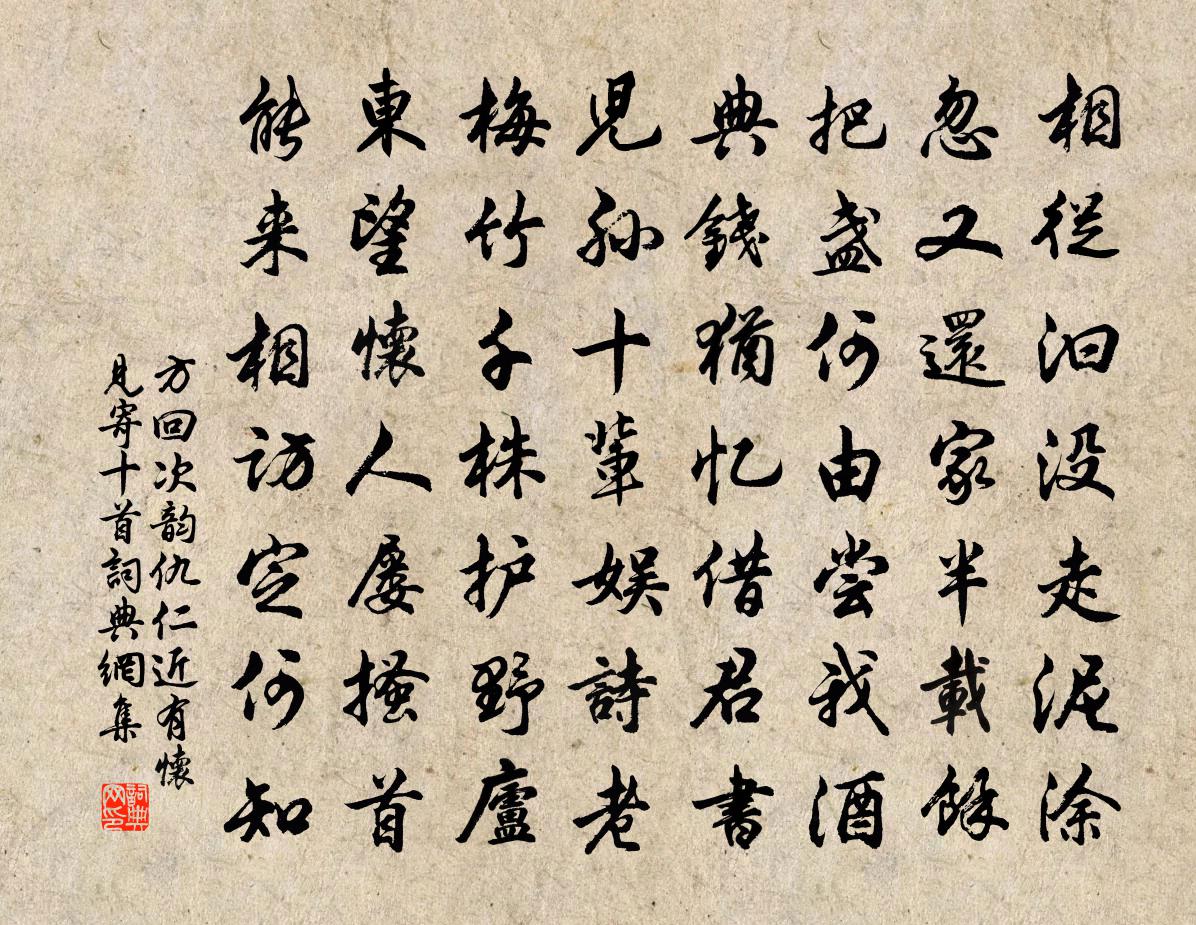 相從汩没走泥涂
忽又還家半載餘
把盏何由尝我酒
典錢猶忆借君書
児孙十輩娱詩老
梅竹千株护野廬
東望懷人屡搔首
能来相访定何知
方回次韵仇仁近有懷
見寄十首詞典網集
詞典网印